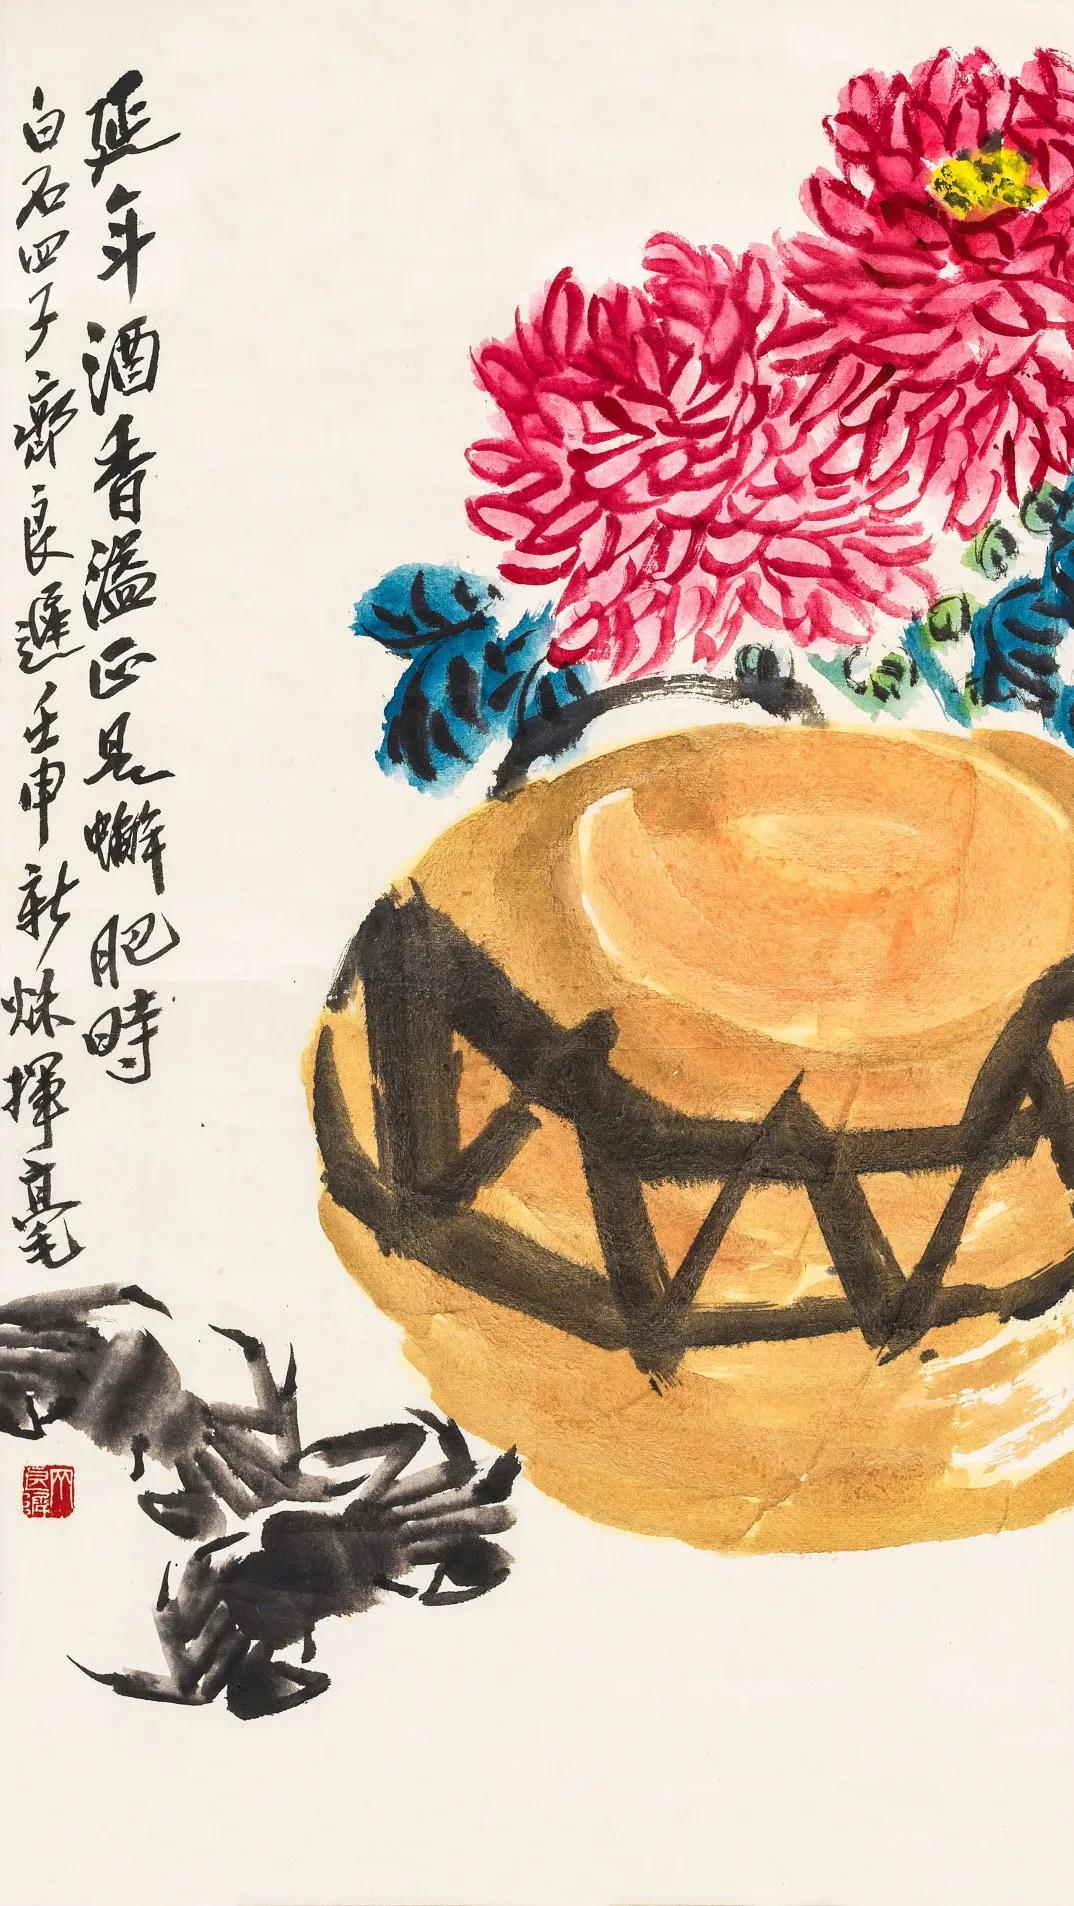 延年酒香溢正是蠏肥時
白石四子齊良遲壬申新秌揮毫